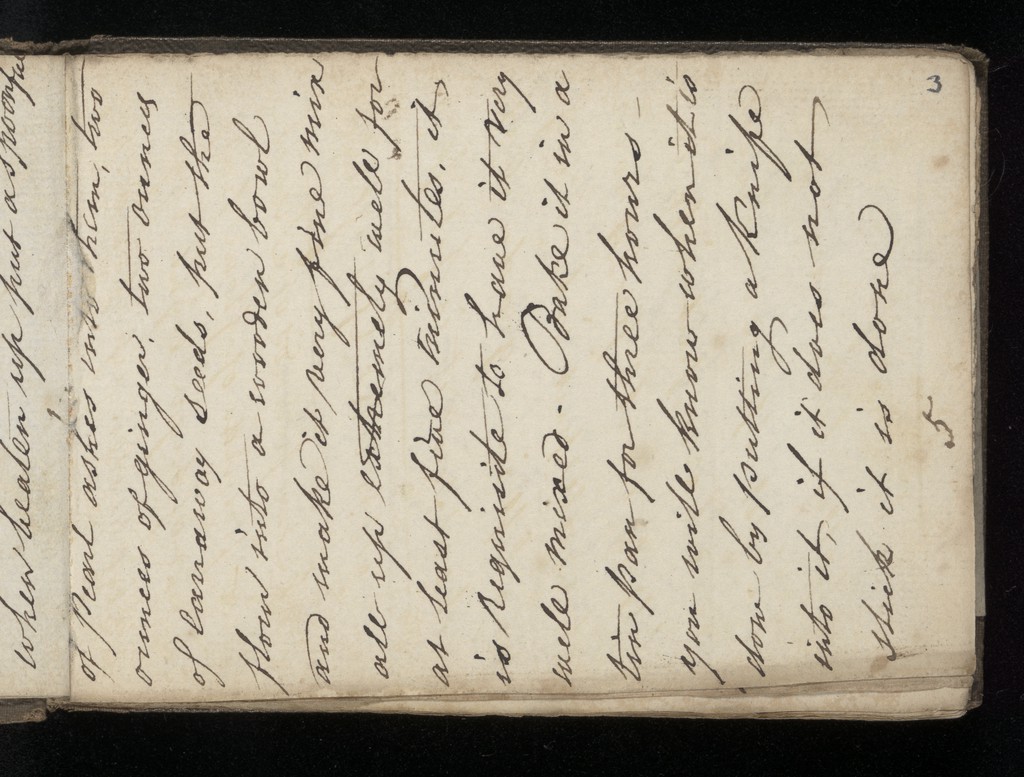 when beaten up put a spoonful
of Pearl ashes into them, two
ounces of ginger, two ounces
of carraway seeds, put the
flour into a wooden bowl
and make it very fine mix
all up extremely well for
at least five minutes, it
is requisite to have it very
well mixed. Bake it in a
tin pan for three hours -
you will know when it is
done by putting a knife
into it, if it does not
stick it is done
5
3